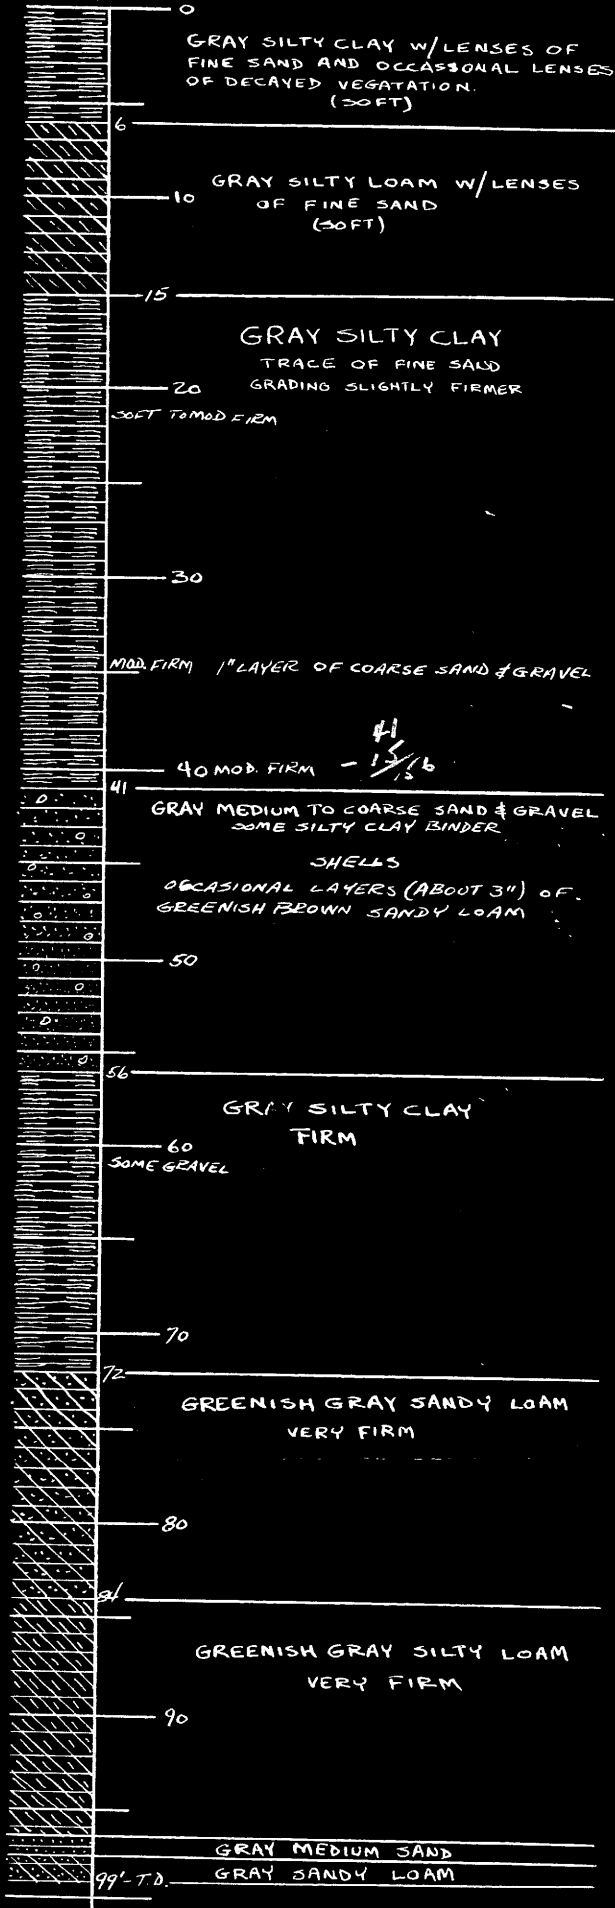 0
GRAY SILTY CLAY W/LENSES OF
FINE SAND AND OCCASSONAL LENSES
OF DECAYED VEGATATION.
(SOFT)
6
GRAY SILTY LOAM W/LENSES
10
OF FINE SAND
(SOFT)
15
GRAY SILTY CLAY
TRACE OF FINE SAND
20
GRADING SLIGHTLY FIRMER
SOFT TO MOD FIRM
30
MOD. FIRM 1" LAYER OF COARSE SAND & GRAVEL
41
- 15
40 MOD. FIRM
41
GRAY MEDIUM TO COARSE SAND & GRAVEL
SOME SILTY CLAY BINDER
SHELLS
OCCASIONAL LAYERS (ABOUT 3") OF
GREENISH BROWN SANDY LOAM
50
56
GRAY SILTY CLAY
FIRM
60
SOME GRAVEL
70
72
GREENISH GRAY SANDY LOAM
VERY FIRM
80
84
GREENISH GRAY SILTY LOAM
VERY FIRM
90
GRAY MEDIUM SAND
99'-T.D. GRAY SANDY LOAM